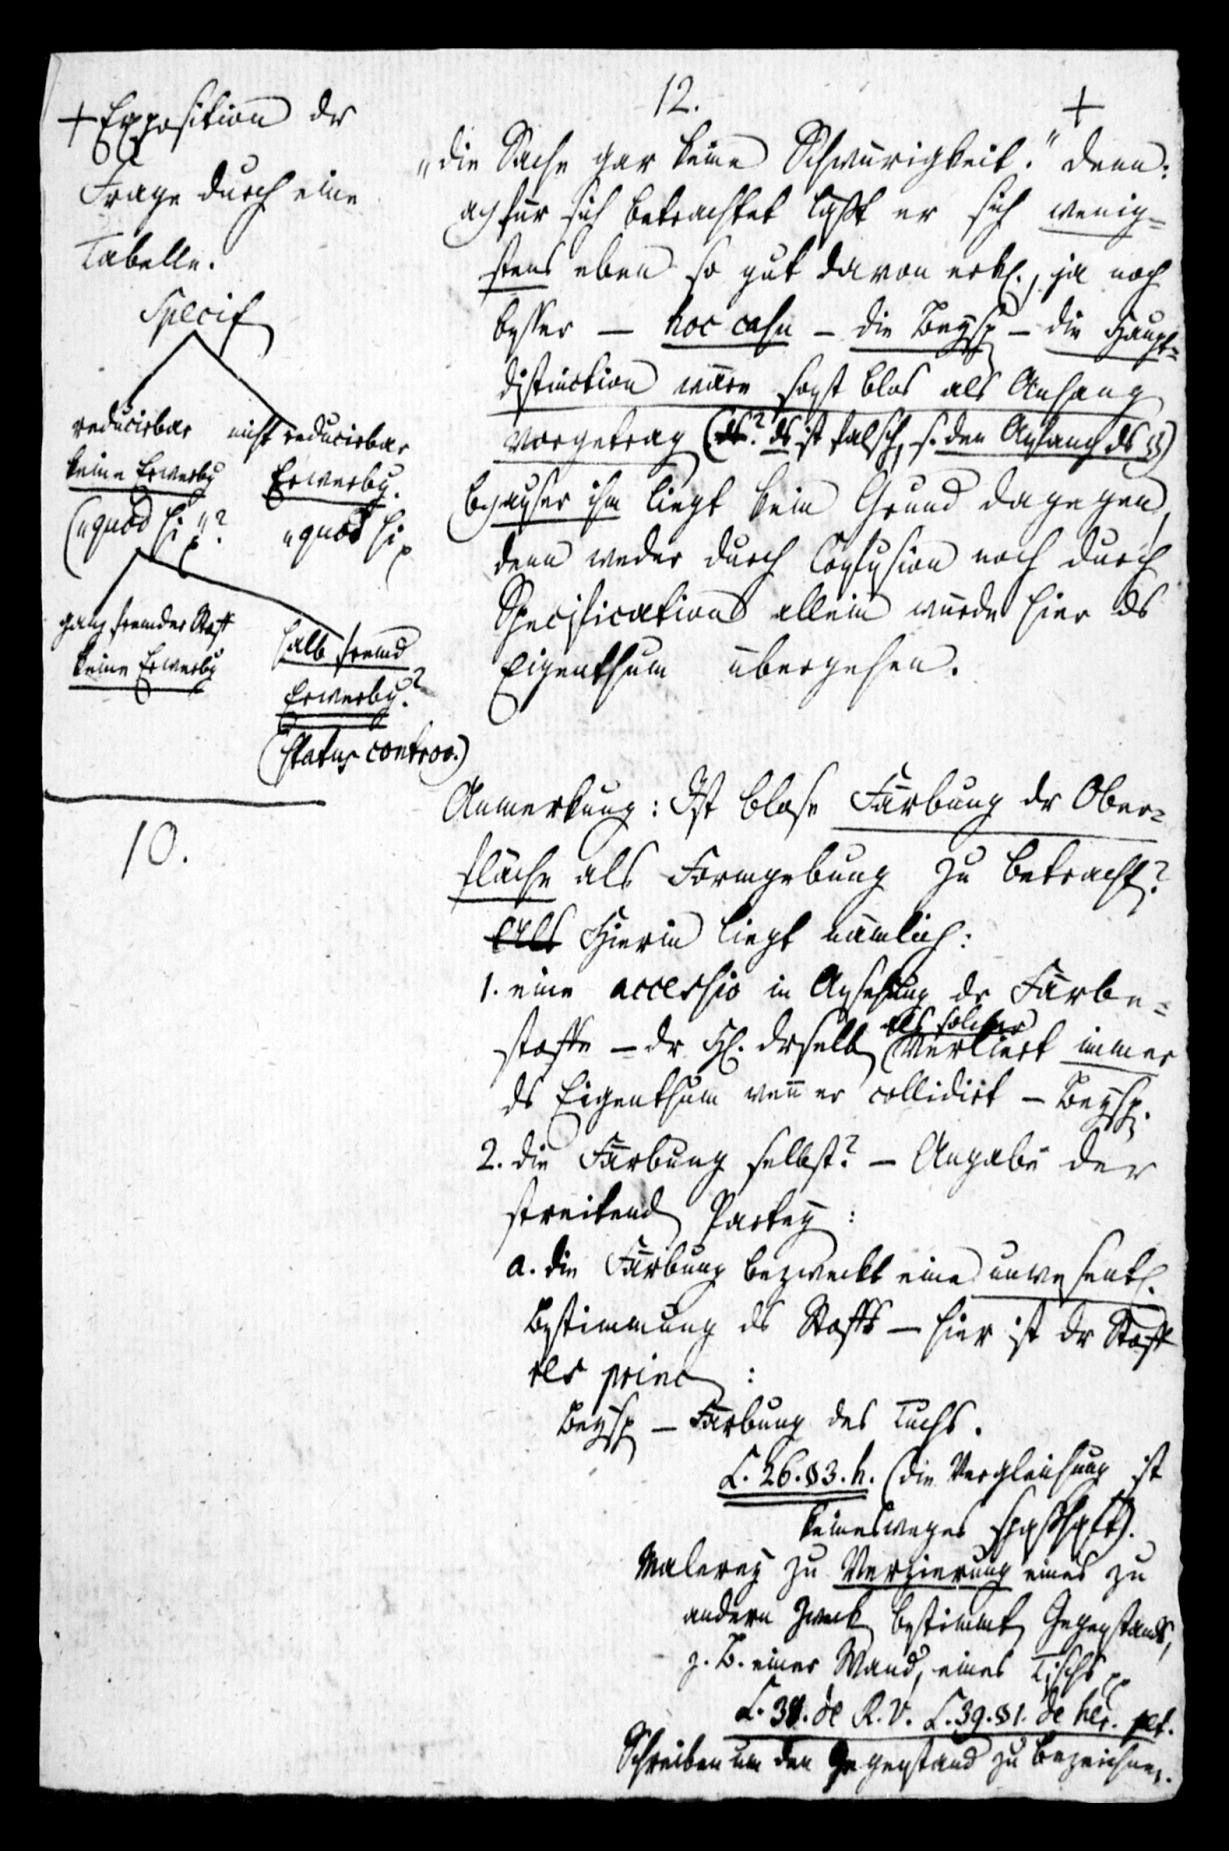 12.
+ Exposition dr
Frage durch eine
Tabelle.
Specif
reducirbar nicht reducirbar
keine Erwerbg Erwerbg.
("quod si"? "quod si
ganz fremder Stoff halb fremd
keine Erwerbg Erwerbg?
(Status controv.)
10.
+
"die Sache gar keine Schwürigkeit." denn:
a) für sich betrachtet läßt er sich wenig=
stens eben so gut davon erkl., ja noch
besser — hoc casu — die Beysp — die Haupt=
distinction wäre sonst blos als Anhang
vorgetrag (ds? ds ist falsch, s. den Anfang ds §)
b) auser ihm liegt kein Grund dagegen,
denn weder durch Confusion noch durch
Specification allein würde hier ds
Eigenthum übergehen.
Anmerkung: Ist blose Färbung dr Ober=
fläche als Formgebung zu betracht?
Als Hierin liegt nämlich:
1. eine accessio in Ansehung dr Färbe=
stoffe — dr H. drselb als solcher verliert immer
ds Eigenthum wenn er collidirt — Beysp.
2. die Färbung selbst? — Angabe der
streitend Partey:
a. die Färbung bezweckt eine unwesentl.
Bestimmung ds Stoffs — hier ist dr Stoff
res princ:
Beysp — Färbung des Tuchs.
L. 26. § 3. h. (die Vergleichung ist
keineswegs spaßhaft).
Malerey zu Verzierung eines zu
andern Zweck bestimmt Gegenstands,
z. B. einer Wand, eines Tischs
L. 38. de R. V. L. 39. § 1. de her. pet.
Schreiben um den Gegenstand zu bezeichnen.